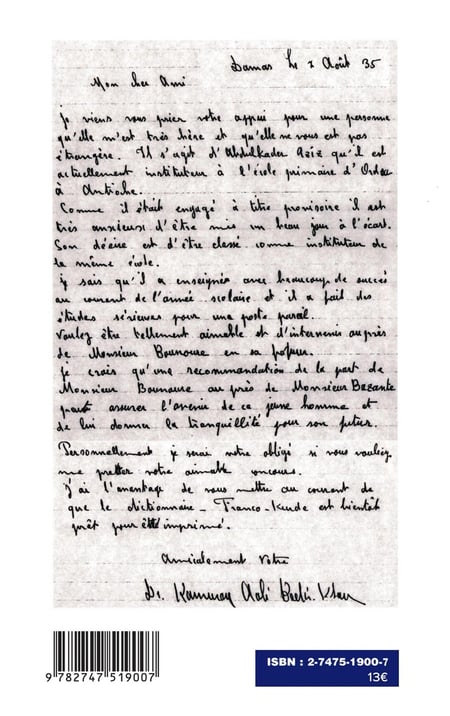 Damas le 2 Août 35
Mon cher Ami
Je viens vous prier votre appui pour une personne
qu'elle m'est très chère et qu'elle ne vous est pas
étrangère. Il s'agit d'Abdulkader Aziz qu'il est
actuellement instituteur à l'école primaire d'Ordou
à Antioche.
Comme il était engagé à titre provisoire il est
très anxieux d'être mis un beau jour à l'écart.
Son désire est d'être classé comme instituteur de
la même école.
je sais qu'il a enseigné avec beaucoup de succès
au courant de l'année scolaire et il a fait des
études sérieuses pour une poste
Voulez être tellement aimable et d'intervenir auprès
de Monsieur Bounoure en sa
je crois qu'une recommandation de la part de
Monsieur Bounoure au près de Monsieur Bazante
peut assurer l'avenir de ce jeune homme et
de lui donner la tranquillité pour son futur.
Personnellement je serai votre obligé si vous vouliez
me pretter votre aimable concours.
J'ai l'avantage de vous mettre au courant de
que le dictionnaire - Franco-Kurde est bientôt
prêt pour être imprimé.
Amicalement Votre
Dr. Kamuran Aali Bedir-Khan
9 782747 519007
ISBN : 2-7475-1900-7
13€